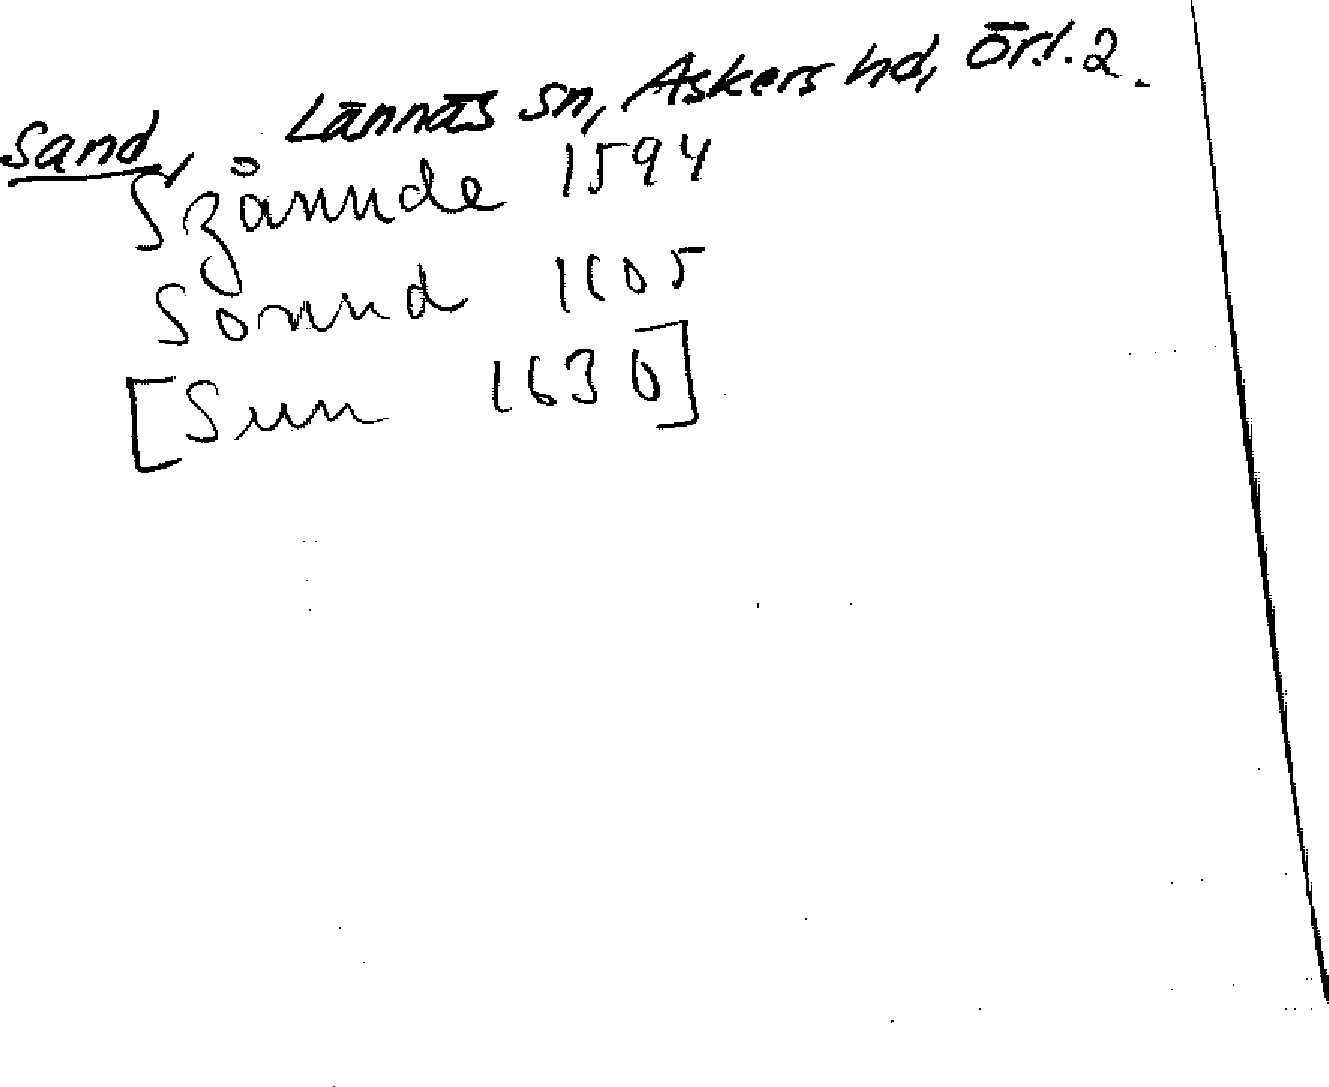 Sand, Lännäs sn, Askers hd, Ör.l. 2.
Szånnde 1594
Sonnd 1605
[Sun 1630]